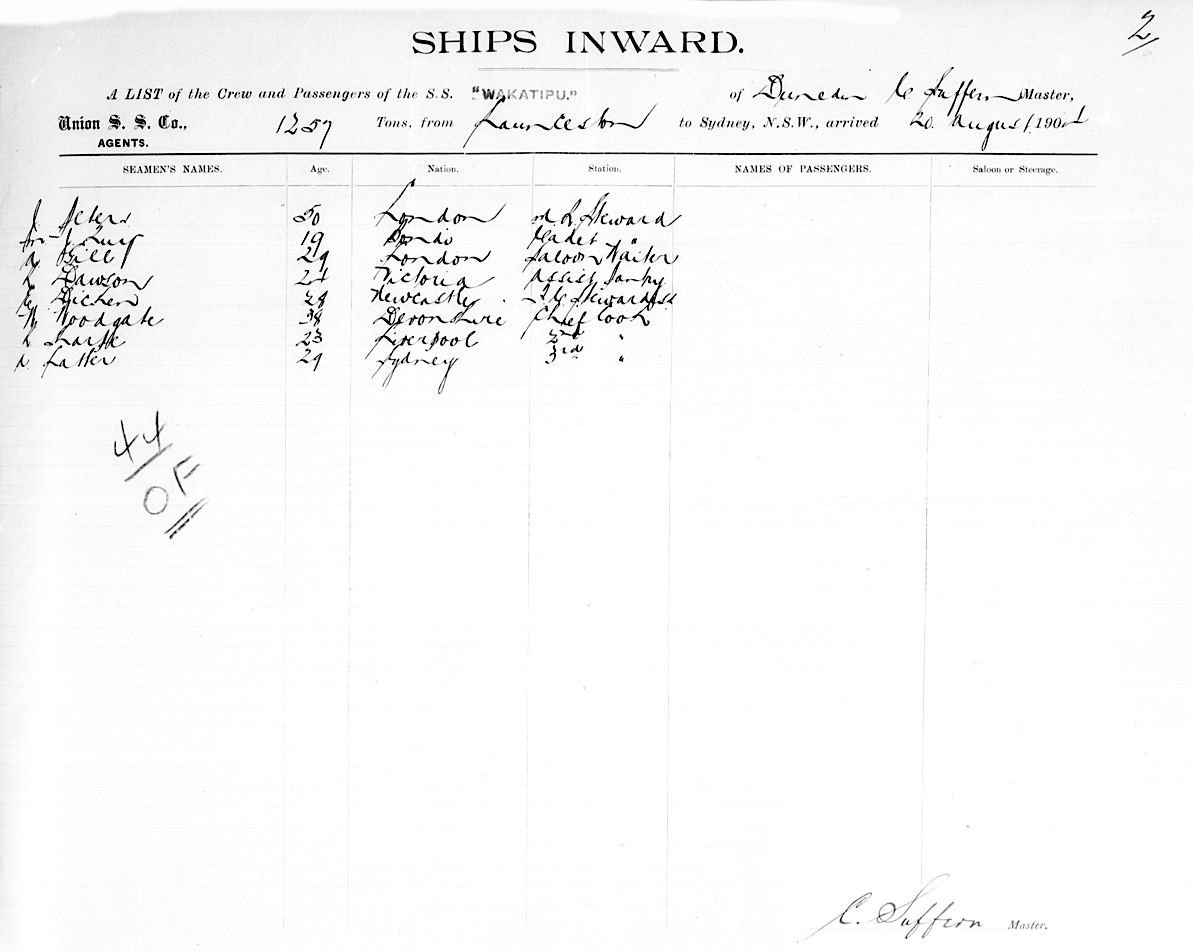 2
SHIPS INWARD.
A LIST of the Crew and Passengers of the S.S. "WAKATIPU." of Dunedin C Suffern Master,
Union S. S. Co., 1257 Tons, from Launceston to Sydney, N.S.W., arrived 20 August 190
AGENTS.
SEAMEN'S NAMES. Age. Nation. Station. NAMES OF PASSENGERS. Saloon or Steerage.
J. Peters 50 London Steward
19 Cadet "
Gill 29 London Saloon Waiter
Dawson 21 Victoria Assist Pantry
Dicken 28 Newcastle Stewardess
W Woodgate 38 Devonshire Chief Cook
23 Liverpool 2nd "
29 Sydney 3rd "
44
OF
C. Suffern Master.